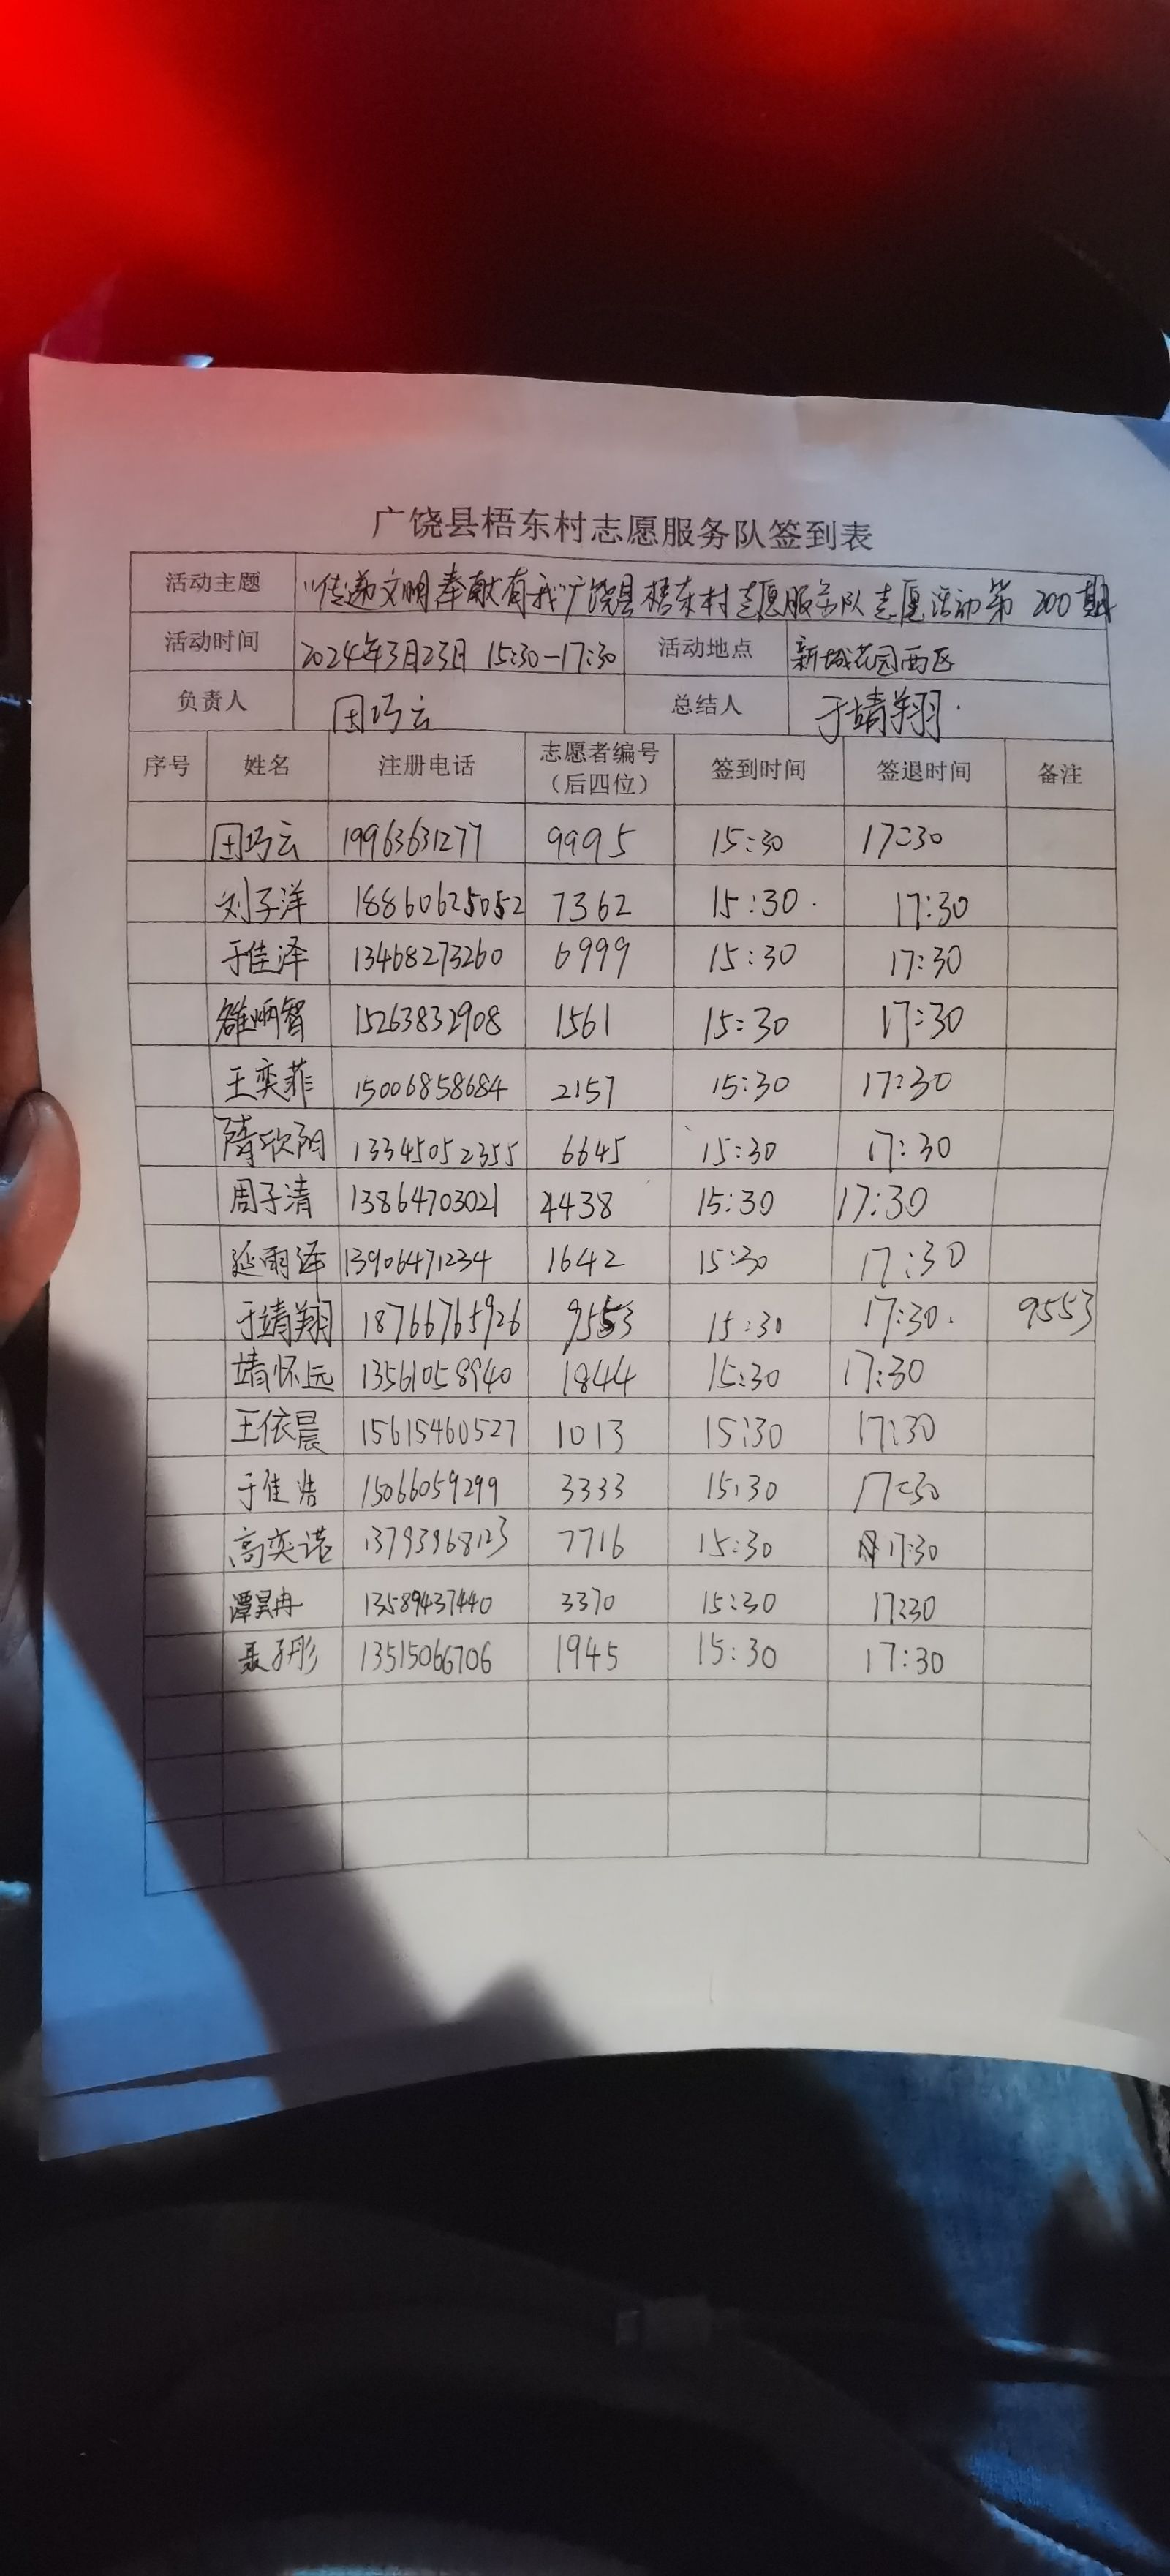 广饶县梧东村志愿服务队签到表
活动主题 "传递文明奉献有我"广饶县梧东村志愿服务队志愿活动第 200期
活动时间 2024年3月23日 15:30-17:30 活动地点 新城花园西区
负责人 田巧云 总结人 于靖翔.
序号 姓名 注册电话 志愿者编号（后四位） 签到时间 签退时间 备注
田巧云 19963631277 9995 15:30 17:30
刘子洋 18860625052 7362 15:30 17:30
于佳泽 13468273260 6999 15:30 17:30
雒炳智 15263832908 1561 15:30 17:30
王奕菲 15006858684 2157 15:30 17:30
隋欣阳 13345052355 6645 15:30 17:30
周子清 13864703021 4438 15:30 17:30
延雨泽 13906471234 1642 15:30 17:30
于靖翔 18766765926 9553 15:30 17:30. 9553
靖怀远 13561058940 1844 15:30 17:30
王依晨 15615460527 1013 15:30 17:30
于佳浩 15066059299 3333 15:30 17:30
高奕诺 13793968123 7716 15:30 17:30
谭昊冉 13589437440 3370 15:30 17:30
聂子彤 13515066706 1945 15:30 17:30